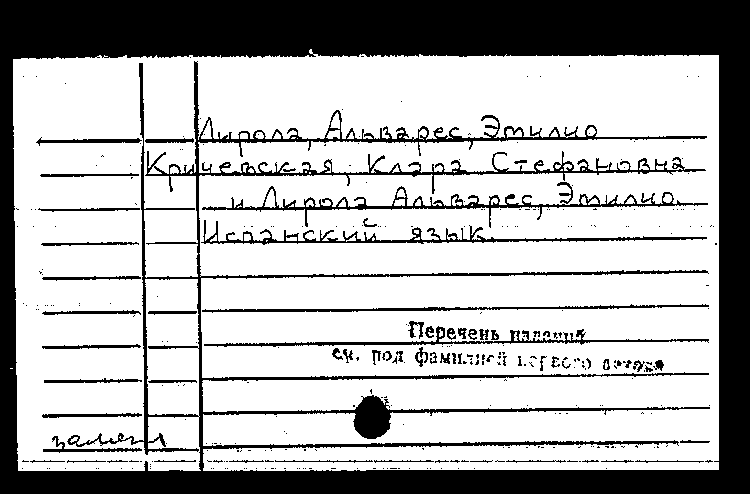 Лирола, Альварес, Этилио
Кричевская, Клара Стефановна
и Лирола Альварес, Этилио.
Испанский язык.
Перечень изданий
см. под фамилией первого автора